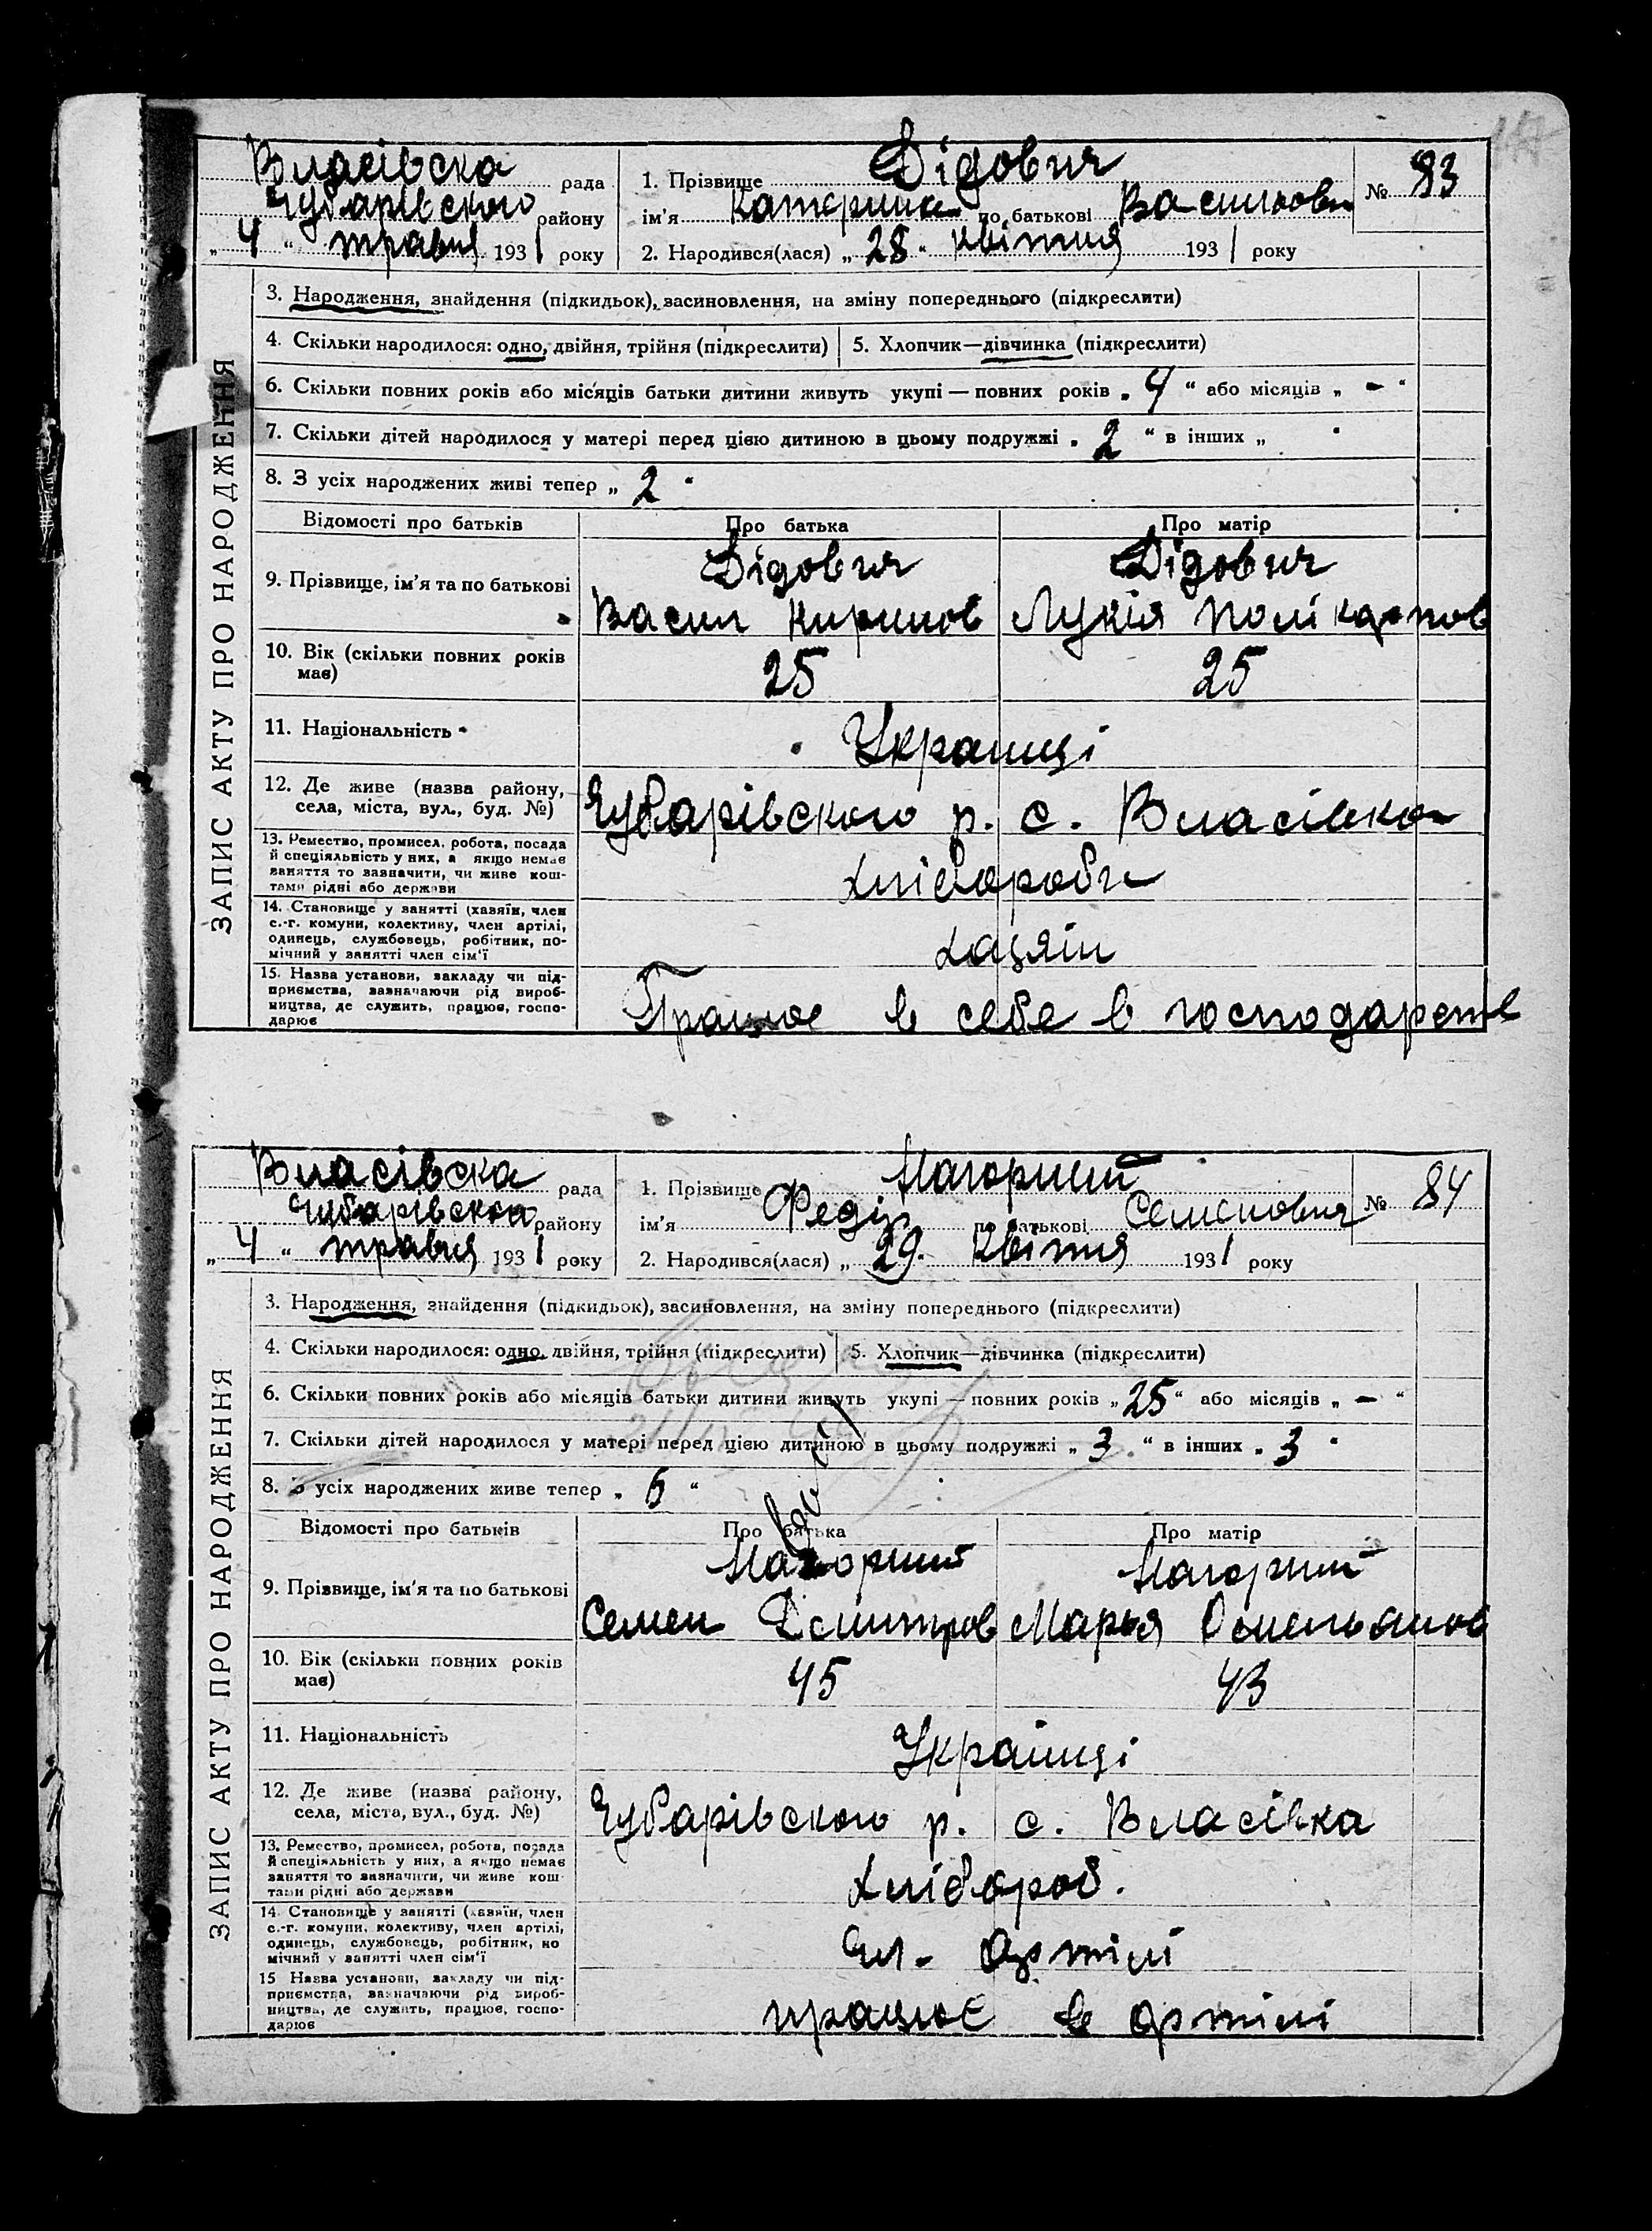 147
Власівска рада
Чубарівского району
„ 4 “ травня 1931 року
1. Прізвище Дідович № 83
ім’я Катерина по батькові Васильовн
2. Народився(лася) „ 28 “ квітня 1931 року
ЗАПИС АКТУ ПРО НАРОДЖЕННЯ
3. Народження, знайдення (підкидьок), засиновлення, на зміну попереднього (підкреслити)
4. Скільки народилося: одно, двійня, трійня (підкреслити) 5. Хлопчик—дівчинка (підкреслити)
6. Скільки повних років або місяців батьки дитини живуть укупі — повних років „ 4 “ або місяців „ - “
7. Скільки дітей народилося у матері перед цією дитиною в цьому подружжі „ 2 “ в інших „ “
8. З усіх народжених живі тепер „ 2 “
Відомості про батьків Про батька Про матір
9. Прізвище, ім’я та по батькові
Дідович Дідович
Васил Кирилов Лукія Полікарпов
10. Вік (скільки повних років має) 25 25
11. Національність Украинці
12. Де живе (назва району, села, міста, вул., буд. №) Чубарівского р. с. Власівка
13. Ремество, промисел, робота, посада
й спеціяльність у них, а якщо немає
заняття то зазначити, чи живе кош-
тами рідні або держави
Хлібороби
14. Становище у занятті (хазяїн, член
с.-г. комуни, колективу, член артілі,
одинець, службовець, робітник, по-
мічний у занятті член сім’ї
Хазяїн
15. Назва установи, закладу чи під-
приємства, зазначаючи рід вироб-
ництва, де служить, працює, госпо-
дарює
Працює в себе в господарств
Власівска рада
Чубарівского району
„ 4 “ травня 1931 року
1. Прізвище Нагорний № 84
ім’я Федір по батькові Семенович
2. Народився(лася) „ 29. квітня 1931 року
ЗАПИС АКТУ ПРО НАРОДЖЕННЯ
3. Народження, знайдення (підкидьок), засиновлення, на зміну попереднього (підкреслити)
4. Скільки народилося: одно, двійня, трійня (підкреслити) 5. Хлопчик—дівчинка (підкреслити)
6. Скільки повних років або місяців батьки дитини живуть укупі — повних років „ 25 “ або місяців „ - “
7. Скільки дітей народилося у матері перед цією дитиною в цьому подружжі „ 3 “ в інших „ 3 “
8. З усіх народжених живе тепер „ 6 “
Відомості про батьків Про батька Про матір
9. Прізвище, ім’я та по батькові
Нагорний Нагорний
Семен Дмитров Марья Омельянов
10. Вік (скільки повних років має) 45 43
11. Національність Українці
12. Де живе (назва району, села, міста, вул., буд. №) Чубарівского р. с. Власівка
13. Ремество, промисел, робота, посада
й спеціяльність у них, а якщо немає
заняття то зазначити, чи живе кош-
тами рідні або держави
Хлібороб.
14. Становище у занятті (хазяїн, член
с.-г. комуни, колективу, член артілі,
одинець, службовець, робітник, по
мічний у занятті член сім’ї
Чл. Артілі
15 Назва установи, закладу чи під-
приємства, зазначаючи рід вироб-
ництва, де служить, працює, госпо-
дарює
працює в артілі